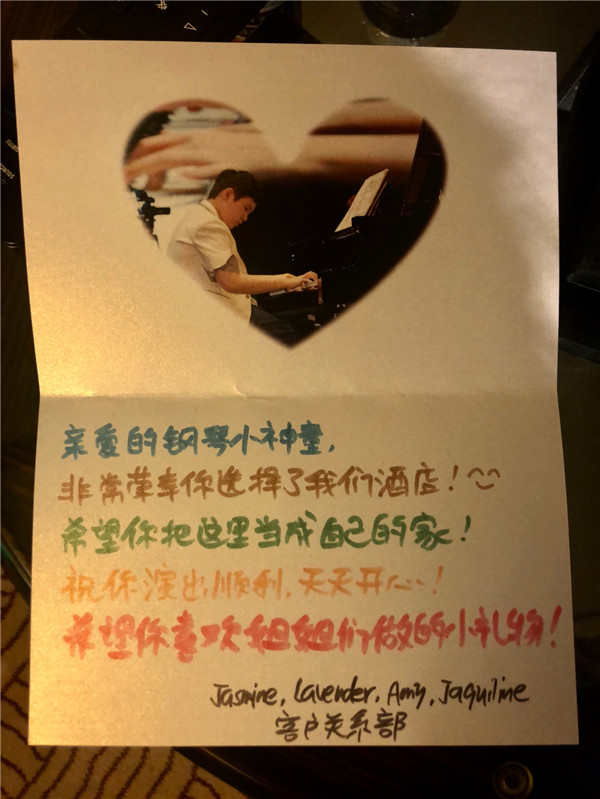 亲爱的钢琴小神童，
非常荣幸你选择了我们酒店！
希望你把这里当成自己的家！
祝你演出顺利，天天开心！
希望你喜欢姐姐们做的小礼物！
Jasmine, Lavender, Amy, Jaquiline
客户关系部